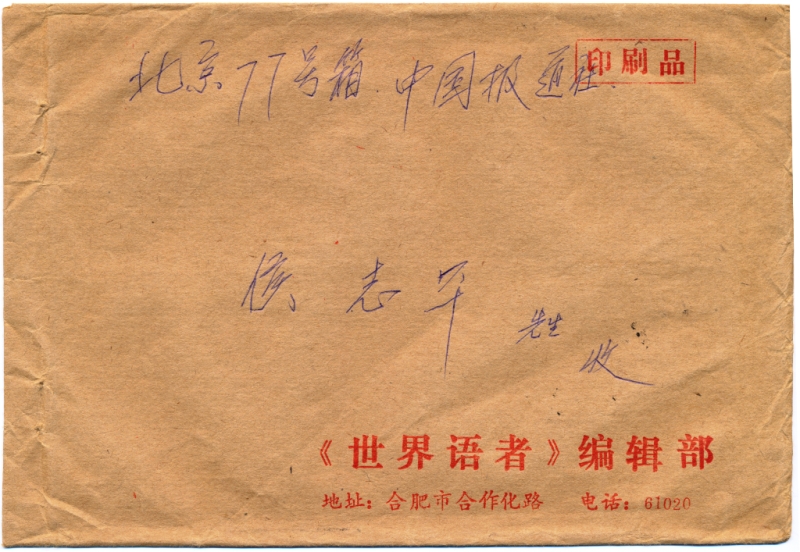 印刷品
北京77号箱.中国报道社.
侯志平
先生
收
《世界语者》编辑部
地址：合肥市合作化路 电话：61020